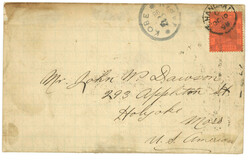 KOBE
Mr. John W. Dawson,
293 Appleton St
Holyoke
Mass
U.S. America